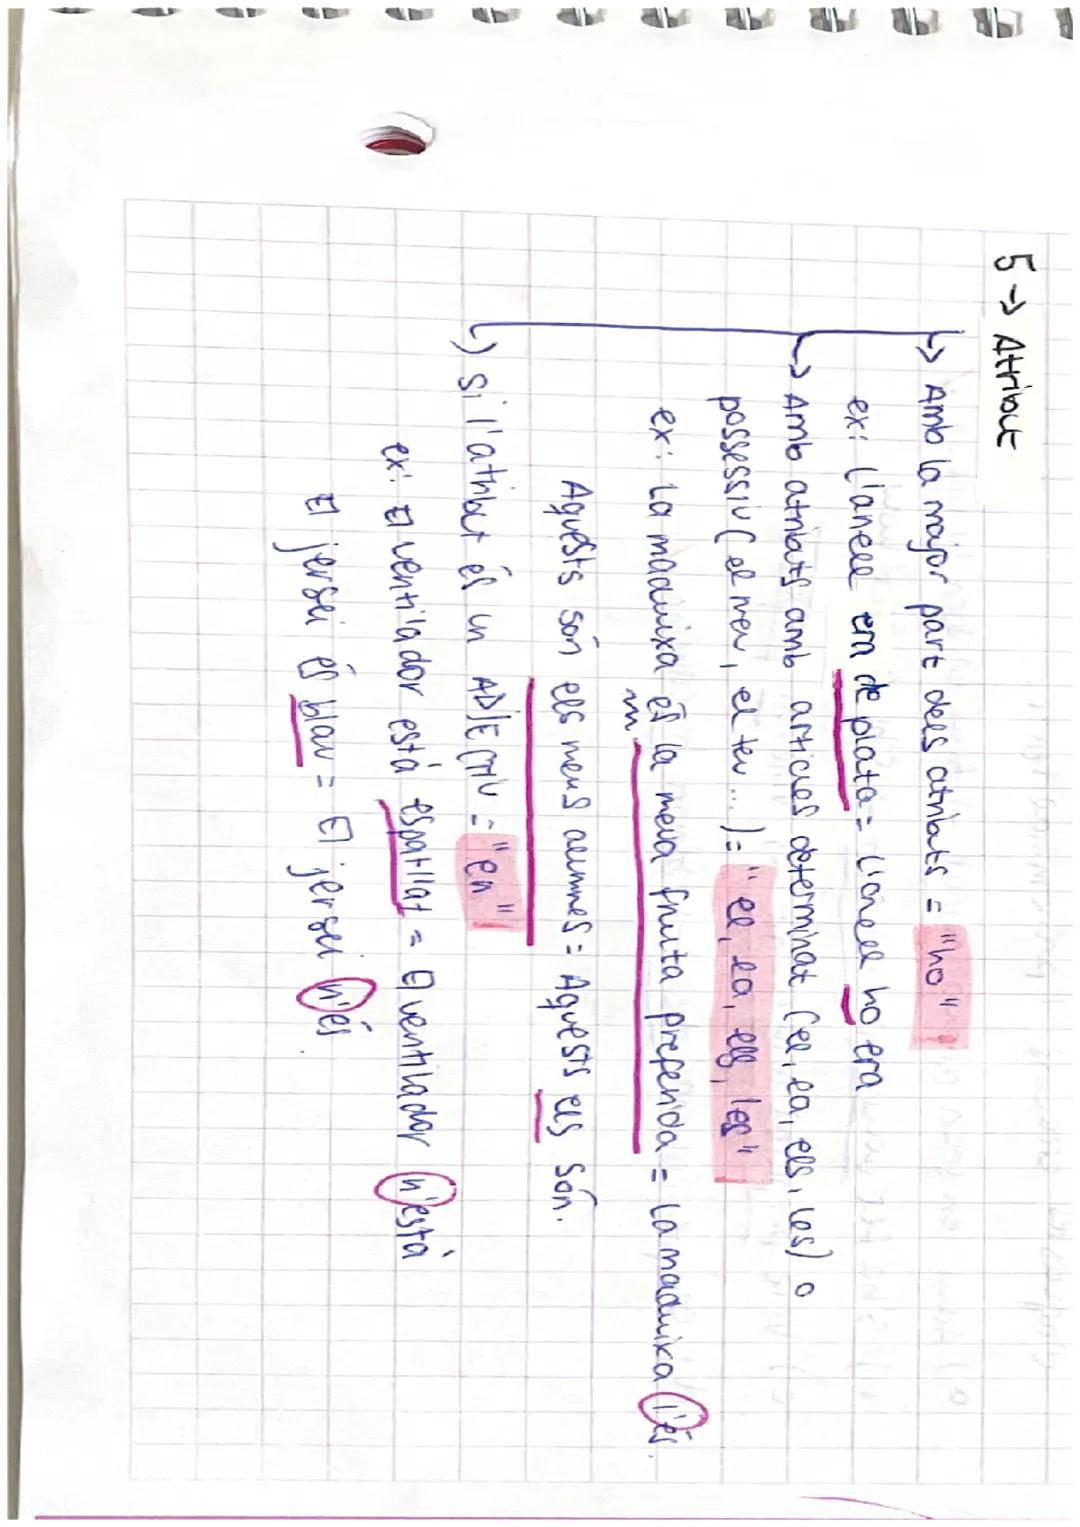 5 → Atribut
↳ Amb la major part dels atributs = "ho"
ex: L'anell era de plata = L'anell ho era
↳ Amb atributs amb articles determinat (el, la, els, les) o
possessiu (el meu, el teu...) = "el, la, els, les"
ex: La maduixa és la meva fruita preferida = La maduixa l'és.
Aquests són els meus alumnes = Aquests els són.
↳ Si l'atribut és un ADJECTIU = "en"
ex: El ventilador està espatllat = El ventilador n'està
El jersei és blau = El jersei n'és